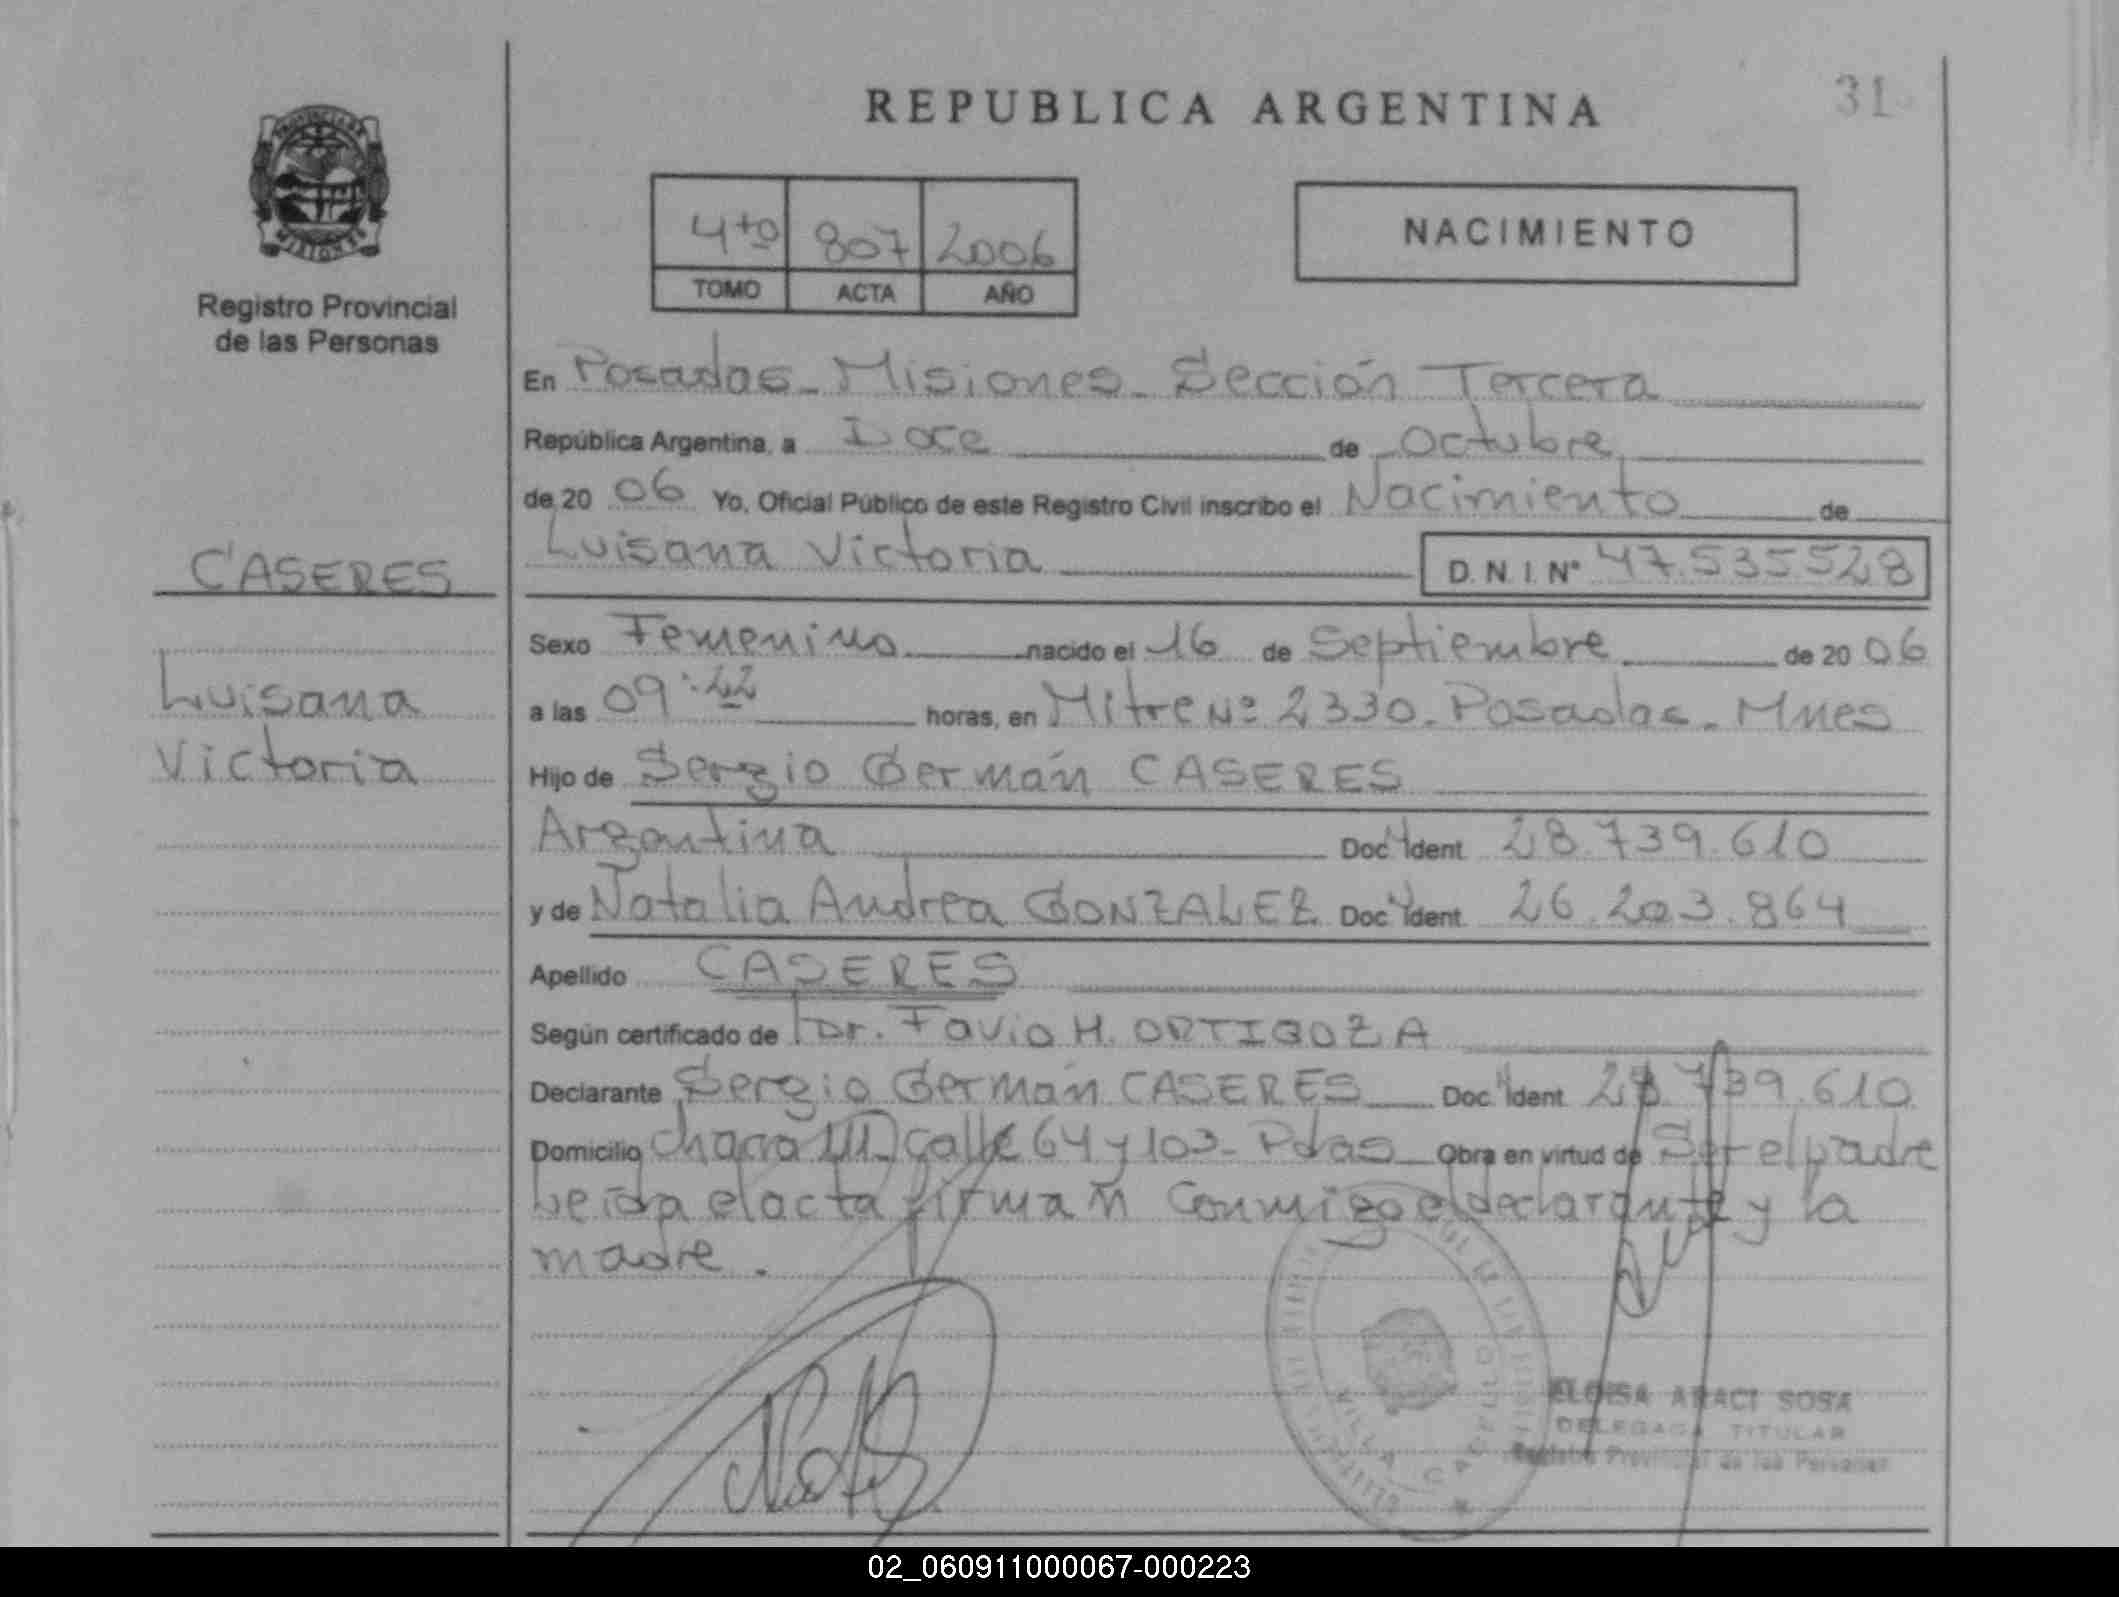 REPUBLICA ARGENTINA
31
PROVINCIA DE
MISIONES
Registro Provincial
de las Personas
4to 807 2006
TOMO ACTA AÑO
NACIMIENTO
CASERES
Luisana
Victoria
En Posadas - Misiones - Sección Tercera
República Argentina, a Doce de Octubre
de 20 06 Yo, Oficial Público de este Registro Civil inscribo el Nacimiento de
Luisana Victoria D. N. I. N° 47.535.528
Sexo Femenino nacido el 16 de Septiembre de 20 06
a las 09:22 horas, en Mitre Nº 2330 - Posadas - Mnes
Hijo de Sergio Germán CASERES
Argentina Doc Ident 28.739.610
y de Natalia Andrea GONZALEZ Doc Ident. 26.203.864
Apellido CASERES
Según certificado de Dr. Favio H. ORTIGOZA
Declarante Sergio Germán CASERES Doc Ident 28.739.610
Domicilio chacra 111 calle 64 y 103 - Pdas Obra en virtud de Ser el padre
Leida el acta firman conmigo el declarante y la
madre.
VILLA CABELLO
ELOISA ARACI SOSA
DELEGADA TITULAR
Registro Provincial de las Personas
02_060911000067-000223